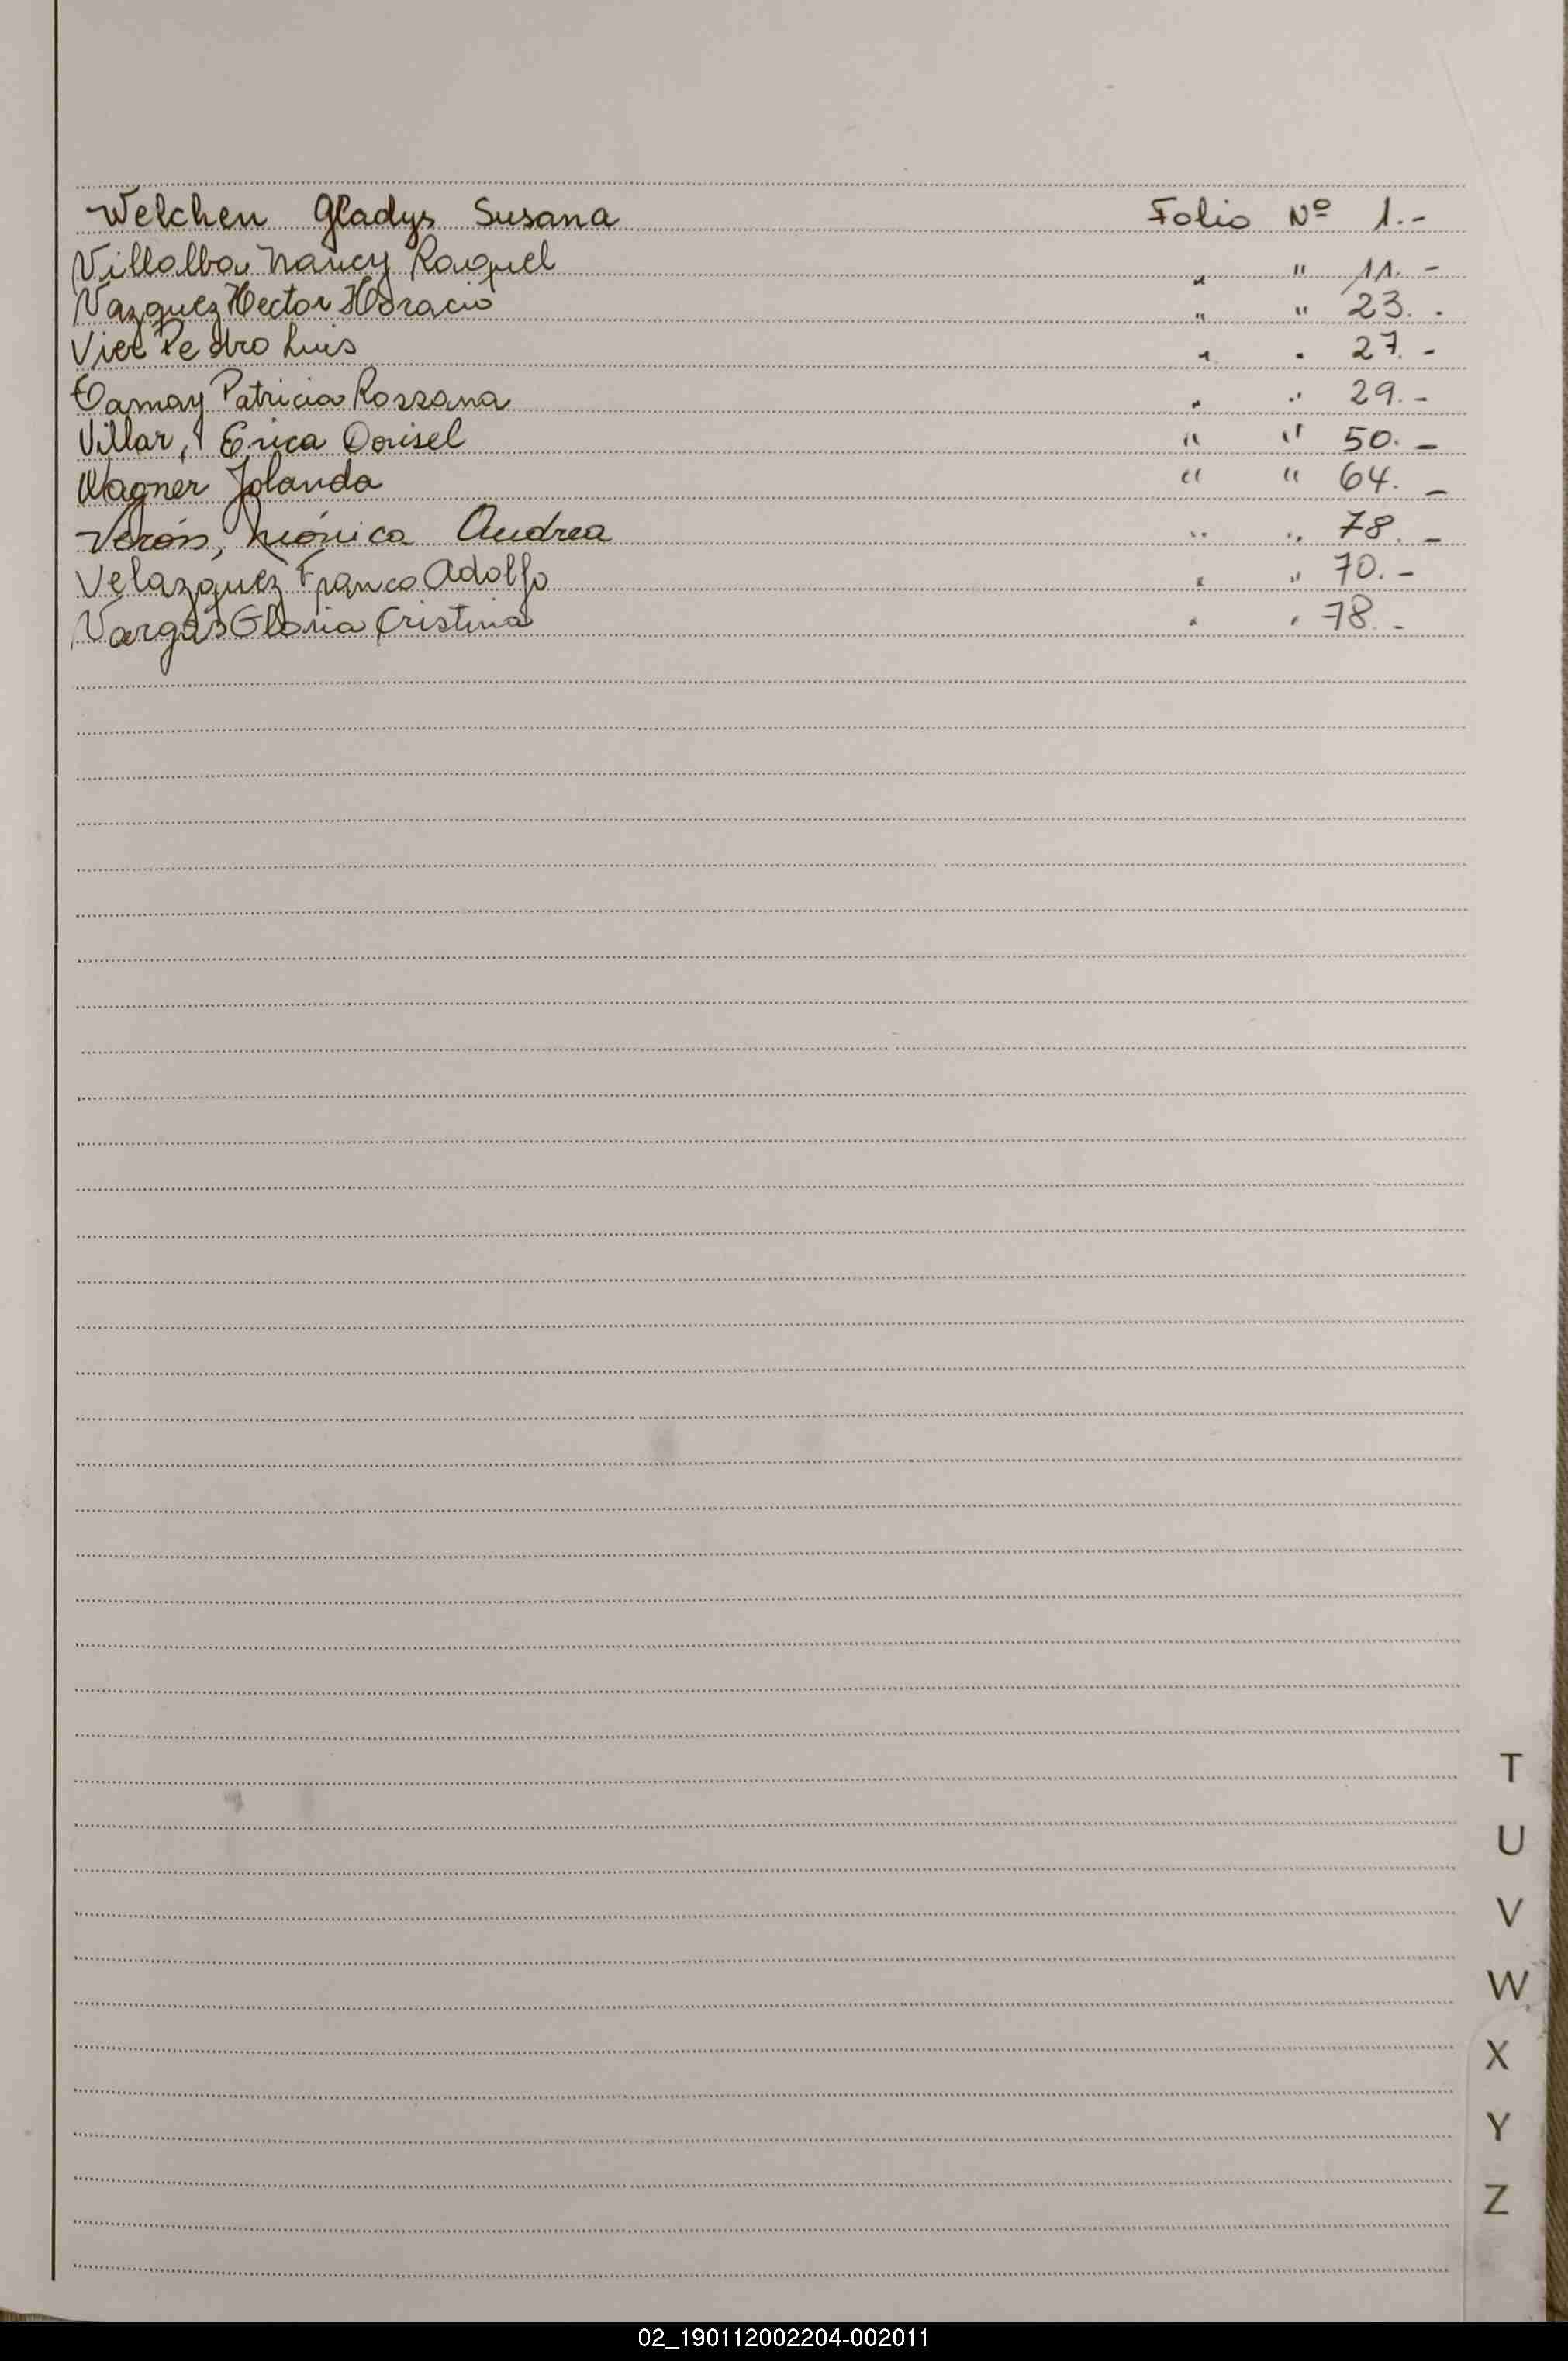 Welchen Gladys Susana Folio Nº 1.-
Villalba, Nancy Raquel " " 11.-
Vazquez Hector Horacio " " 23.-
Vier Pedro Luis " " 27.-
Tamay Patricia Rossana " " 29.-
Villar, Erica Dorisel " " 50.-
Wagner Jolanda " " 64.-
Verón, Mónica Andrea " " 78.-
Velazquez Franco Adolfo " " 70.-
Vargas Gloria Cristina " " 78.-
T
U
V
W
X
Y
Z
02_190112002204-002011